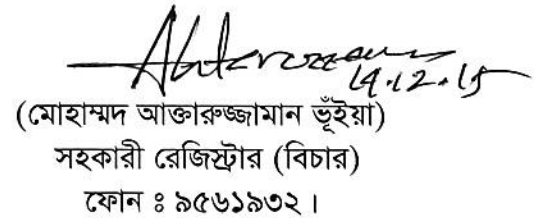 Akterozzaman
14.12.15
(মোহাম্মদ আক্তারুজ্জামান ভূঁইয়া)
সহকারী রেজিস্ট্রার (বিচার)
ফোন ঃ ৯৫৬১৯৩২।